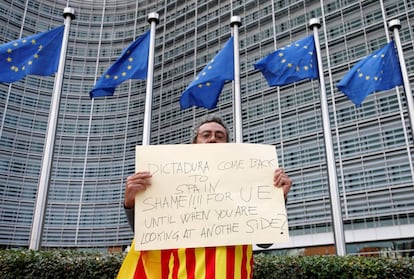 DICTADURA COME BACK
TO
SPAIN
SHAME!!!! FOR UE
UNTIL WHEN YOU ARE
LOOKING AT ANOTHE SIDE?